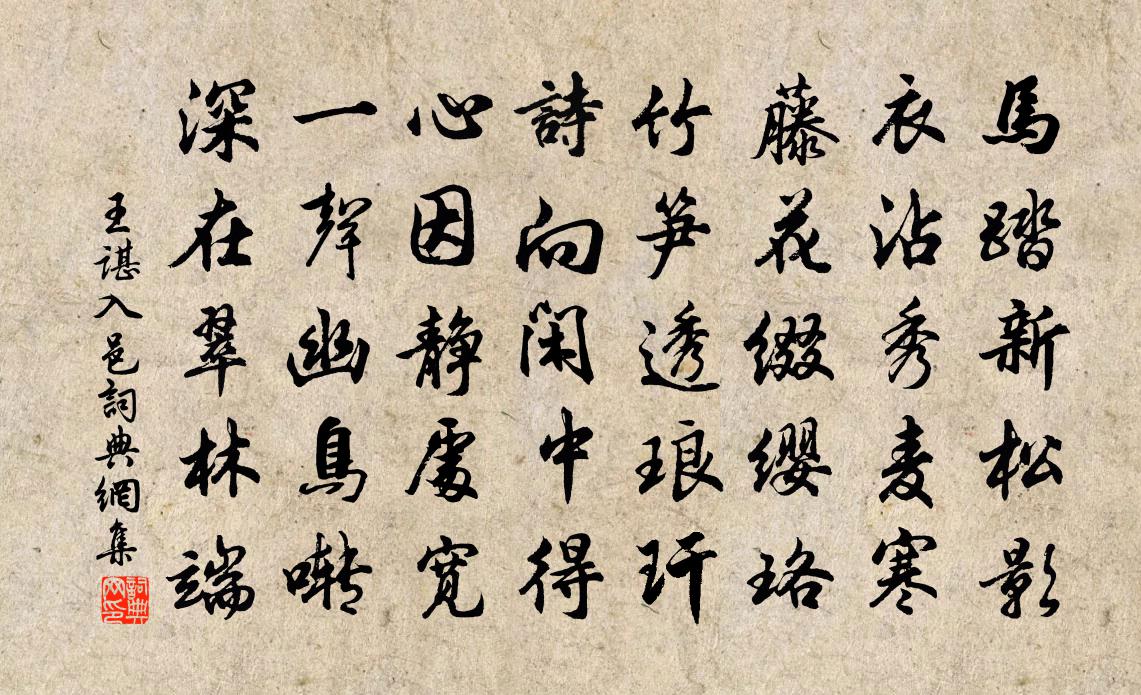 馬踏新松影
衣沾秀麦寒
藤花缀缨珞
竹笋透琅玕
詩向闲中得
心因静處宽
一聲幽鳥啭
深在翠林端
王諶入邑詞典網集
詞典网印